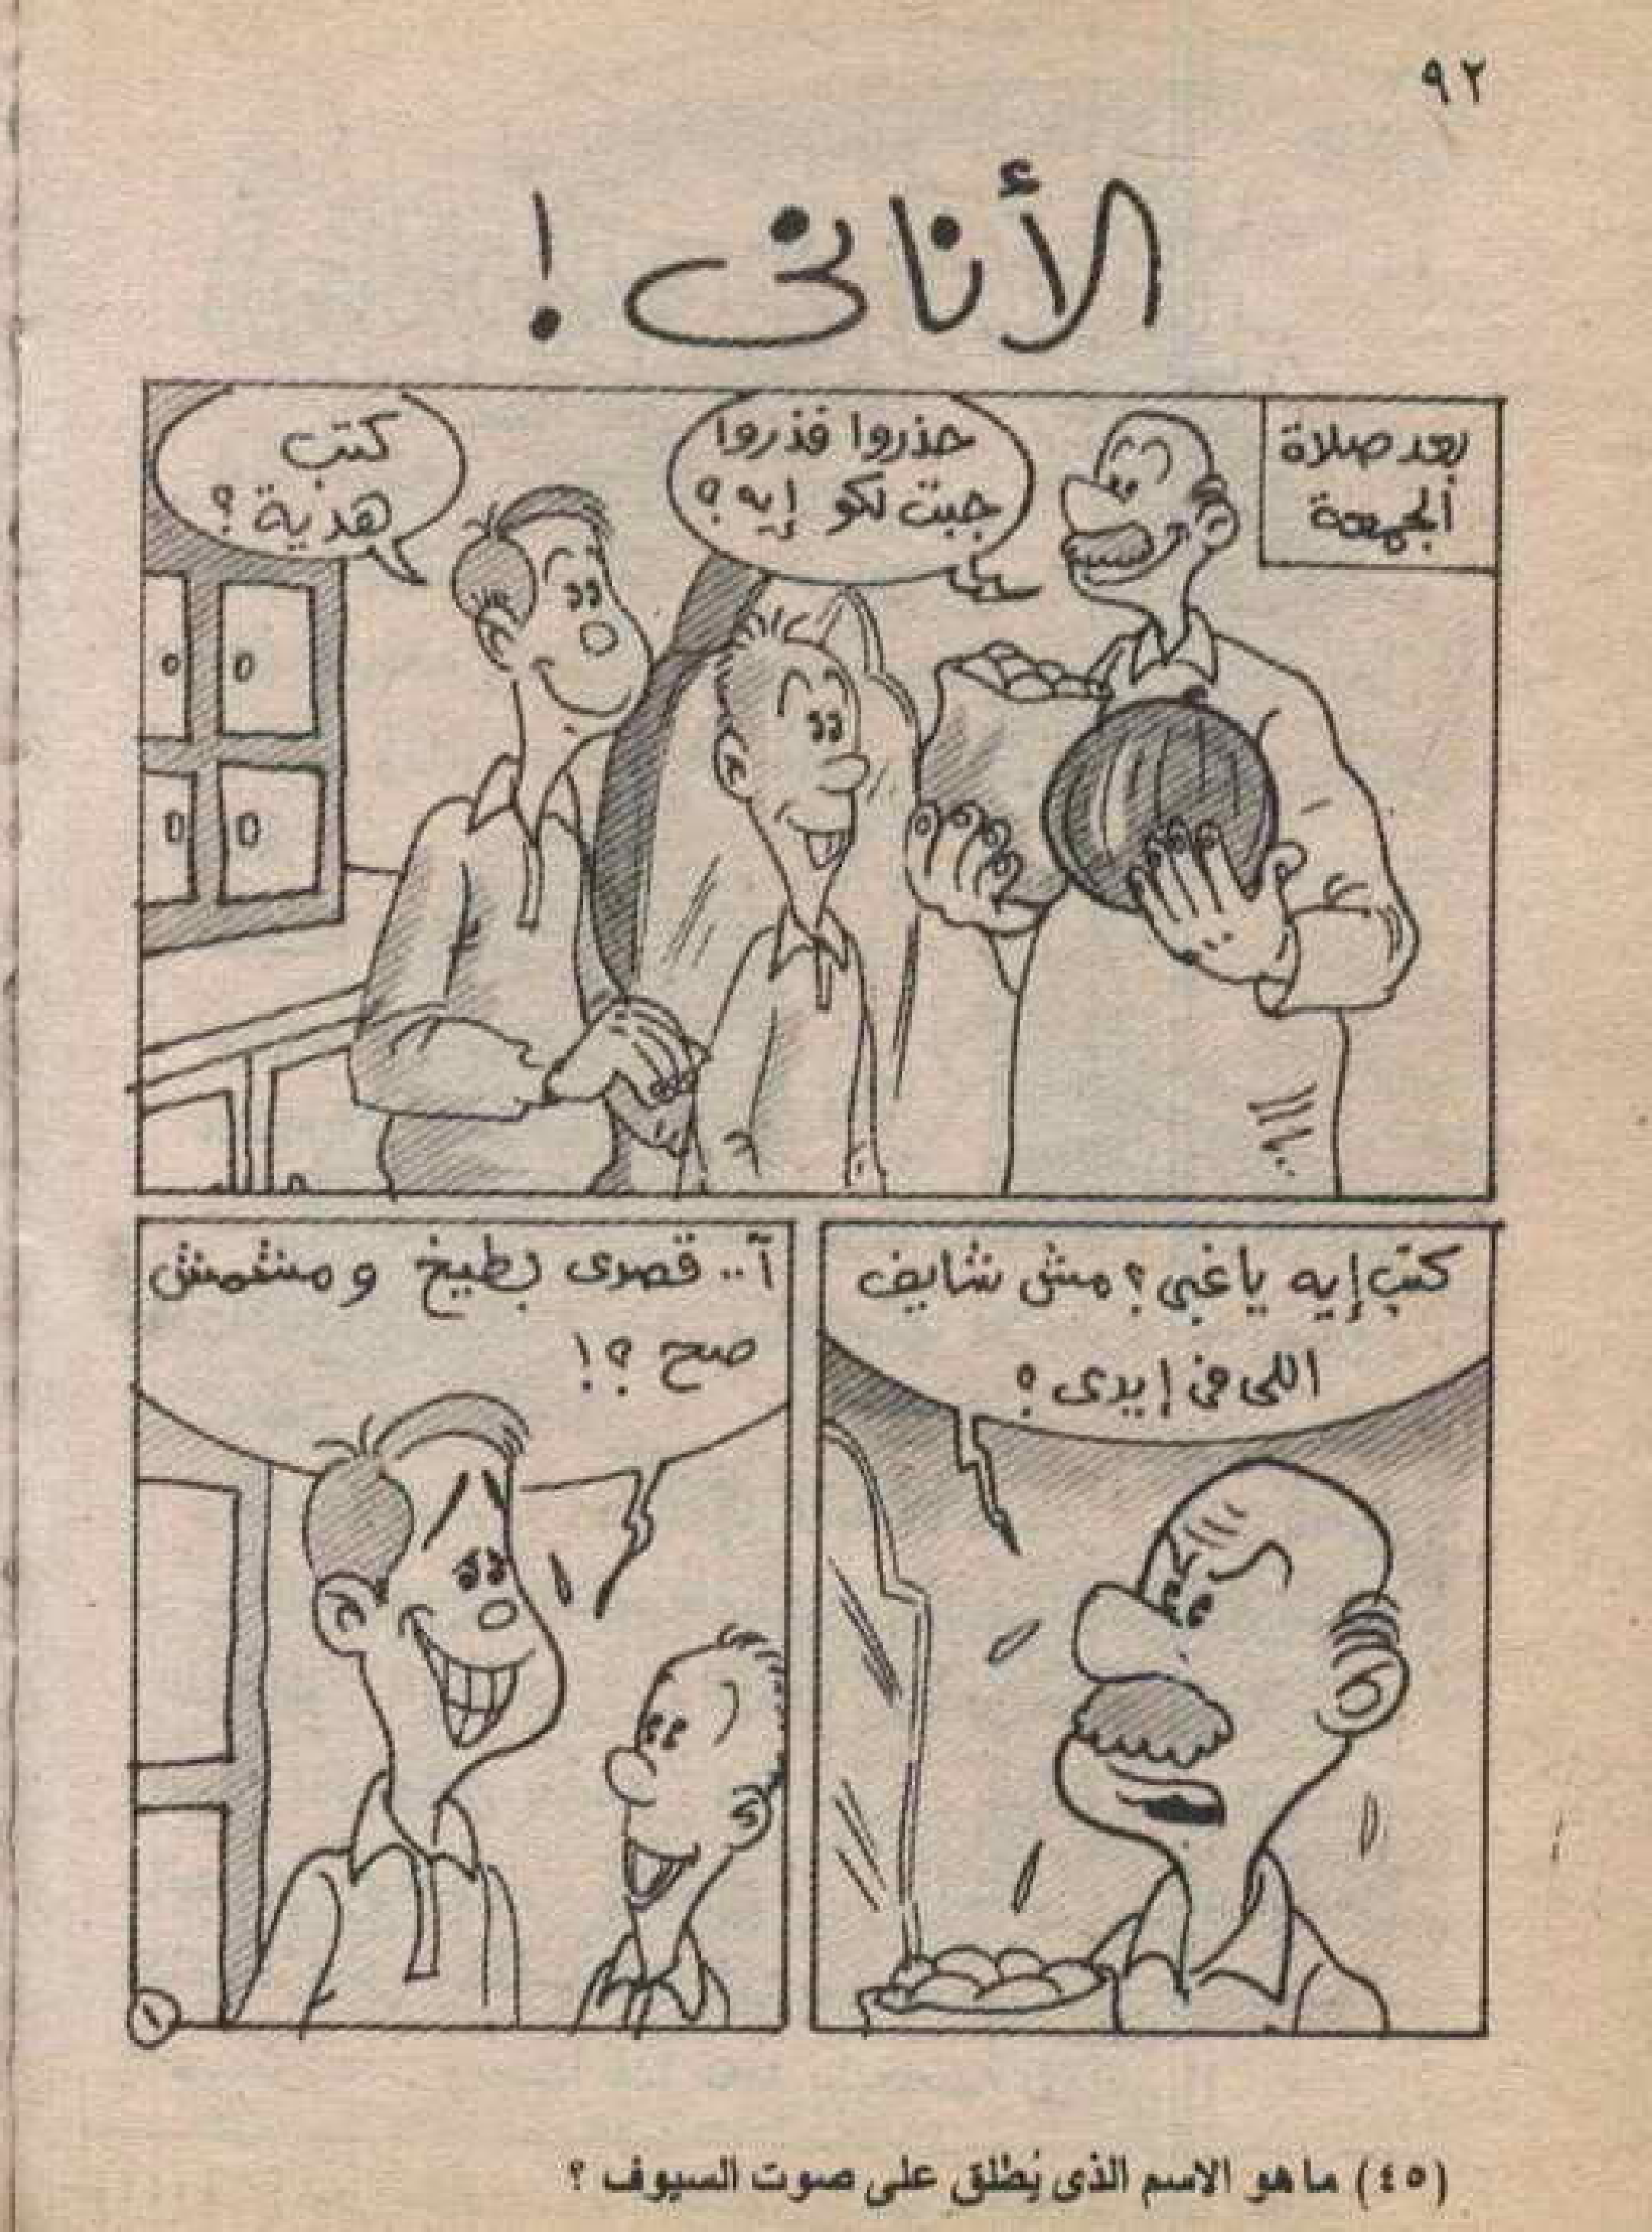 ٩٢
الأنانى !
بعد صلاة
الجمعة
حذروا فذروا
جبت لكو إيه ؟
كتب
هدية ؟
كتب إيه ياغبى ؟ مش شايف
اللى فى إيدى ؟
آ .. قصدى بطيخ ومشمش
صح ؟!
١
(٤٥) ما هو الاسم الذى يُطلق على صوت السيوف ؟